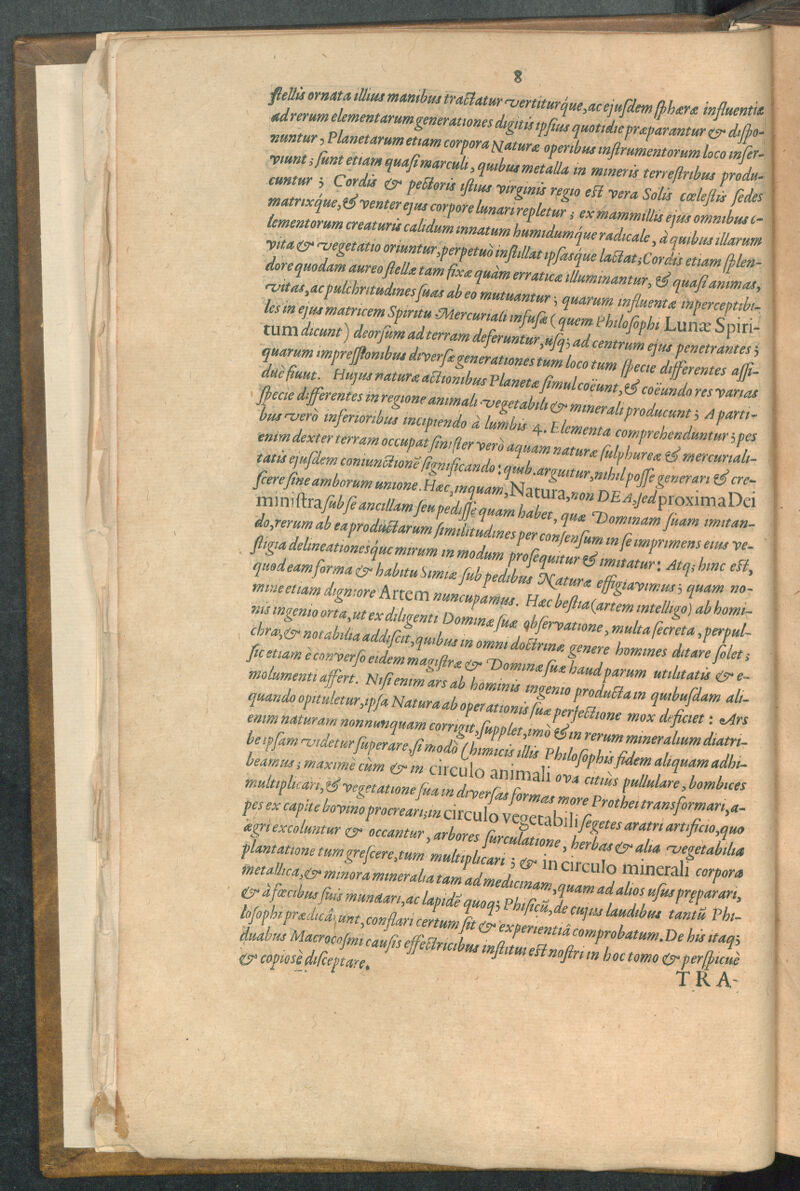 8
stellis ornata illius manibus tractatur vertiturque, ac ejusdem sphæræ influentiæ
ad rerum elementarum generationes digitis ipsius quotidie præparantur & dispo-
nuntur, Planetarum etiam corpora Naturæ operibus instrumentorum loco inser-
viunt; sunt etiam quasi marculi, quibus metalla in mineris terrestribus produ-
cuntur; Cordis & pectoris istius virginis regio est vera Solis cœlestis sedes
matrixque, & venter ejus corpore lunari repletur; ex mammillis ejus omnibus e-
lementorum creaturis calidum innatum humidumque radicale, à quibus illarum
vita & vegetatio oriuntur, perpetuò instillat ipsasque lactat; Cordis etiam splen-
dore quodam aureo stellæ tam fixæ quàm erraticæ illuminantur, & quasi animas,
vitas, ac pulchritudines suas ab eo mutuantur; quarum influentæ inperceptibi-
les in ejus matricem Spiritu Mercuriali infusæ (quem Philosophi Lunæ Spiri-
tum dicunt) deorsum ad terram deferuntur, usq; ad centrum ejus penetrantes;
quarum impressionibus diversæ generationes tum loco tum specie differentes assi-
duè fiunt. Hujus naturæ actionibus Planetæ simul coëunt, & coëundo res varias
specie differentes in regione animali vegetabili & minerali producunt; A parti-
bus verò inferioribus incipiendo à lumbis 4. Elementa comprehenduntur; pes
enim dexter terram occupat sinister verò aquam naturæ sulphureæ & mercuriali-
tatis ejusdem coniunctionē significando: quib. arguitur, nihil posse generari & cre-
scere sine amborum unione. Hæc, inquam, Natura, non DEA, sed proxima Dei
ministra sub se ancillam seu pedissequam habet, quæ Dominam suam imitan-
do, rerum ab ea productarum similitudines per consensum in se imprimens eius ve-
stigia delineationesque mirum in modum prosequitur & imitatur: Atq; hinc est,
quod eam forma & habitu Simiæ sub pedibus Naturæ effigiavimus; quam no-
mine etiam digniore Artem nuncupamus. Hæc bestia (artem intelligo) ab homi-
nis ingenio orta, ut ex diligenti Dominæ suæ observatione, multa secreta, perpul-
chra, & notabilia addiscit, quibus in omni doctrinæ genere homines ditare solet;
sic etiam è converso eidem magistræ & Dominæ suæ haud parum utilitatis & e-
molumenti affert. Nisi enim ars ab hominis ingenio producta in quibusdam ali-
quando opituletur, ipsa Natura ab operationis suæ perfectione mox deficiet: Ars
enim naturam nonnunquam corrigit, supplet, imò & in rerum mineralium diatri-
be ipsam videtur superare, si modò Chimicis illis Philosophis fidem aliquam adhi-
beamus; maximè cùm & in circulo animali ova citiùs pullulare, bombices
multiplicari, & vegetatione sua in diversas formas more Prothei transformari, a-
pes ex capite bovino procreari; in circulo vegetabili segetes aratri artificio, quo
agri excoluntur & occantur, arbores surculatione, herbas & alia vegetabilia
plantatione tum gresscere, tum multiplicari; & in circulo minerali corpora
metallica, & minora mineralia tam ad medicinam, quam ad alios usus preparari,
& à fæcibus suis mundari, ac lapidē quoq; Phisicū, de cujus laudibus tantū Phi-
losophi prædicāt, conflari certum sit & experientiâ comprobatum. De his itaq;
duabus Macrocosmi causis effectricibus institui est nostri in hoc tomo & perspicuè
& copiosè disceptare.
TRA-